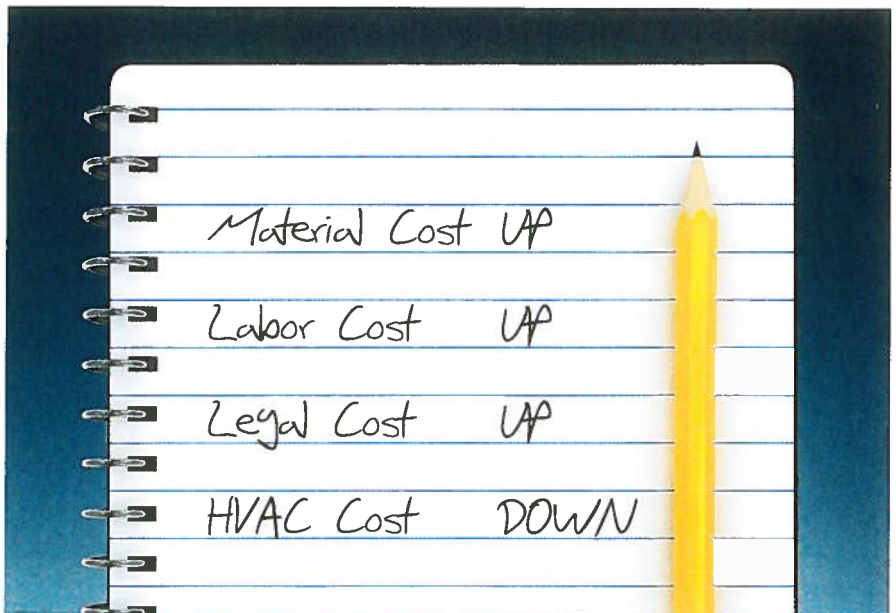 Material Cost UP
Labor Cost UP
Legal Cost UP
HVAC Cost DOWN